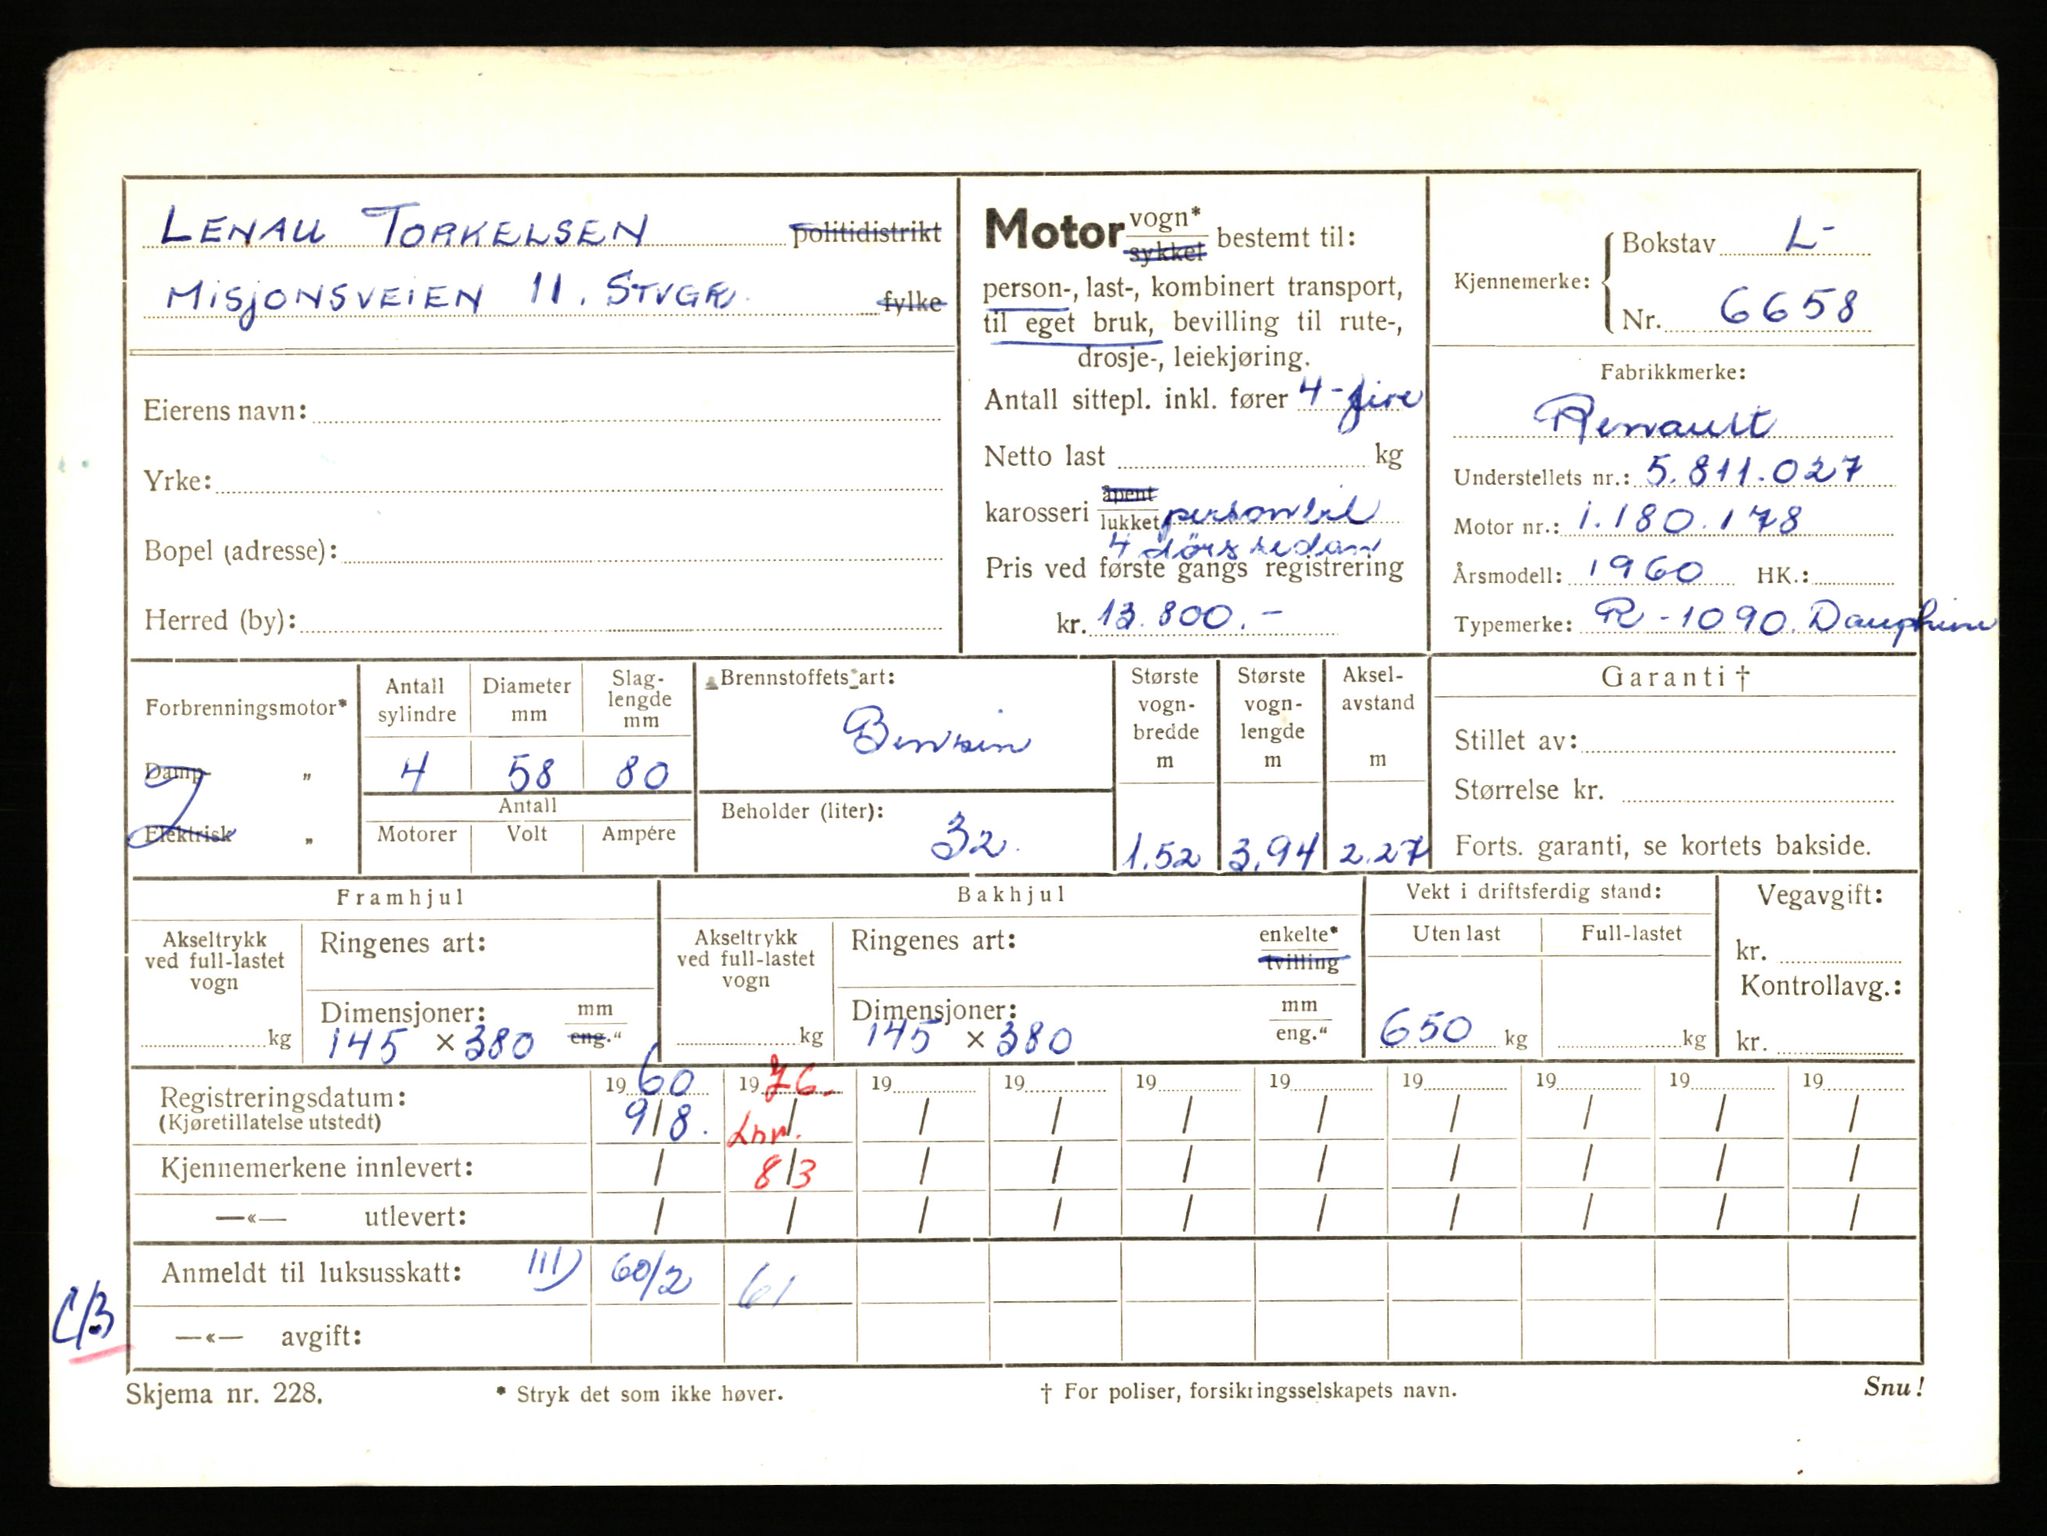 LENAU TORKELSEN politidistrikt
MISJONSVEIEN 11. STVGR. fylke
Eierens navn:
Yrke:
Bopel (adresse):
Herred (by):
Motor vogn* sykkel bestemt til:
person-, last-, kombinert transport,
til eget bruk, bevilling til rute-,
drosje-, leiekjøring.
Antall sittepl. inkl. fører 4-fire
Netto last kg
karosseri åpent lukket personbil
4 dørs sedan
Pris ved første gangs registrering
kr. 13.800.-
Kjennemerke: Bokstav L-
Nr. 6658
Fabrikkmerke:
Renault
Understellets nr.: 5.811.027
Motor nr.: 1.180.178
Årsmodell: 1960 HK.:
Typemerke: R-1090. Dauphine
Forbrenningsmotor*
Damp- "
Elektrisk "
Antall sylindre Diameter mm Slag-lengde mm
4 58 80
Antall
Motorer Volt Ampére
Brennstoffets art:
Bensin
Beholder (liter):
32.
Største vogn-bredde m Største vogn-lengde m Aksel-avstand m
1.52 3,94 2.27
Garanti †
Stillet av:
Størrelse kr.
Forts. garanti, se kortets bakside.
Framhjul
Akseltrykk ved full-lastet vogn
kg
Ringenes art:
Dimensjoner: mm eng."
145 × 380
Bakhjul
Akseltrykk ved full-lastet vogn
kg
Ringenes art: enkelte* tvilling
Dimensjoner: mm eng."
145 × 380
Vekt i driftsferdig stand:
Uten last Full-lastet
650 kg kg
Vegavgift:
kr.
Kontrollavg.:
kr.
Registreringsdatum: 1960 1976. 19 19 19 19 19 19 19 19
(Kjøretillatelse utstedt) 9/8. Lnr. / / / / / / / / /
Kjennemerkene innlevert: / 8/3 / / / / / / / /
—«— utlevert: / / / / / / / / / /
Anmeldt til luksusskatt: III) 60/2 61
—«— avgift:
Skjema nr. 228. * Stryk det som ikke høver. † For poliser, forsikringsselskapets navn. Snu!